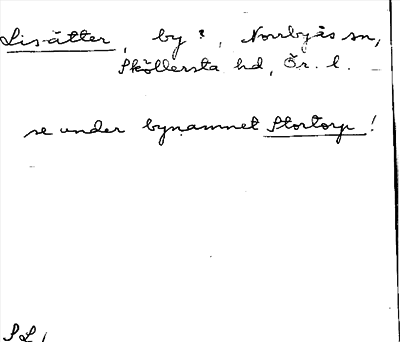 Lisätter, by?, Norrbyås sn,
Sköllersta hd, Ör. l.
se under bynamnet Stortorp!
SL